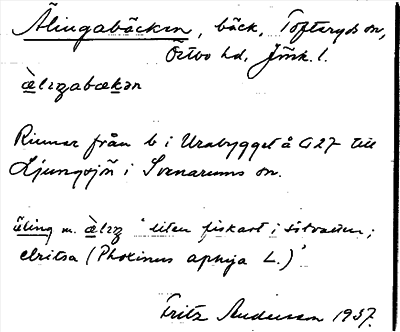 Älingabäcken, bäck, Tofteryds sn,
Östbo hd, Jönk. l.
àlıŋabækən
Rinner från b i Urabygget å G27 till
Ljungsjön i Svenarums sn.
äling m. àlıŋ 'liten fiskart i sötvatten;
elritsa (Phoxinus aphya L.)'
Fritz Andersson 1937.